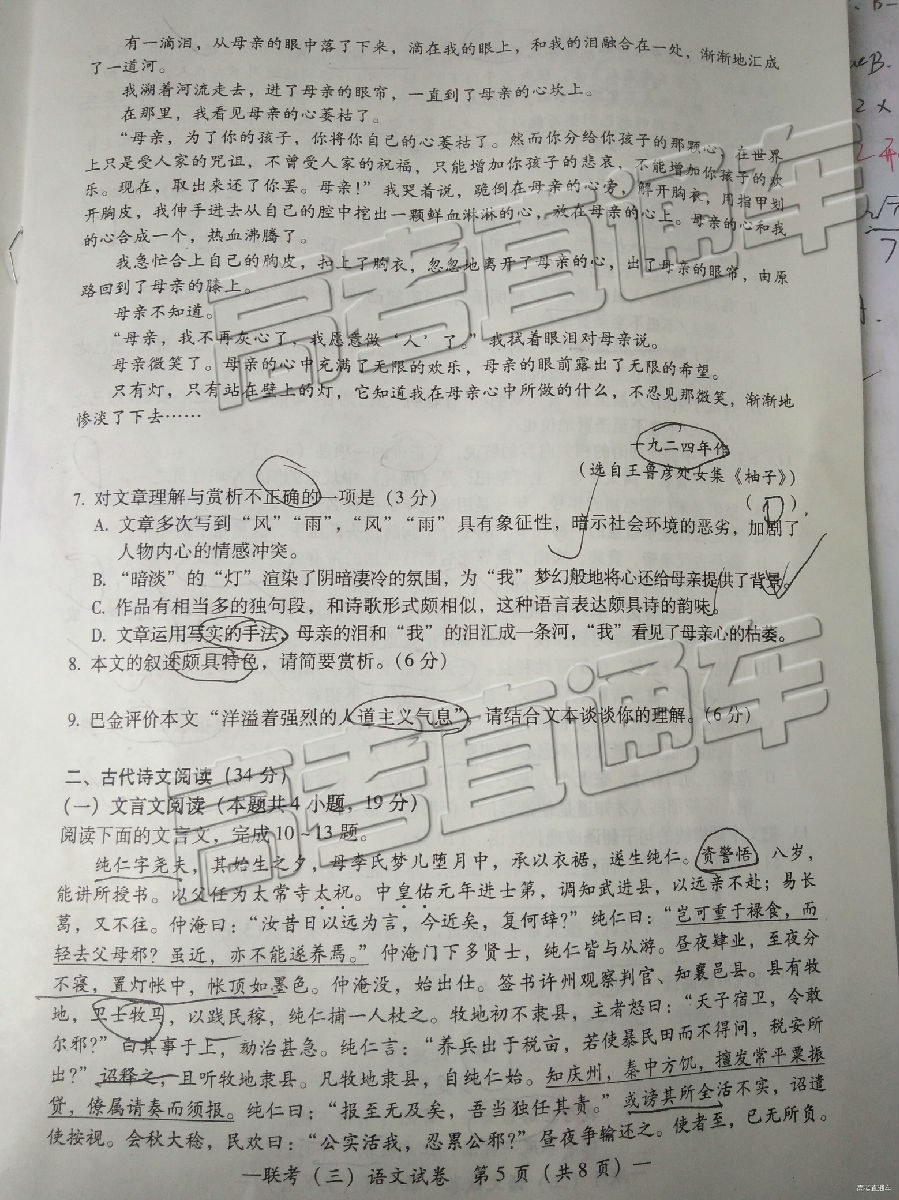 有一滴泪，从母亲的眼中落了下来，滴在我的眼上，和我的泪融合在一处，渐渐地汇成
了一道河。
我溯着河流走去，进了母亲的眼帘，一直到了母亲的心坎上。
在那里，我看见母亲的心萎枯了。
“母亲，为了你的孩子，你将你自己的心萎枯了。然而你分给你孩子的那颗心，在世界
上只是受人家的咒诅，不曾受人家的祝福，只能增加你孩子的悲哀，不能增加你孩子的欢
乐。现在，取出来还了你罢。母亲！”我哭着说，跪倒在母亲的心旁，解开胸衣，用指甲划
开胸皮，我伸手进去从自己的腔中挖出一颗鲜血淋淋的心，放在母亲的心上。母亲的心和我
的心合成一个，热血沸腾了。
我急忙合上自己的胸皮，扣上了胸衣，忽忽地离开了母亲的心，出了母亲的眼帘，由原
路回到了母亲的膝上。
母亲不知道。
“母亲，我不再灰心了，我愿意做‘人’了。”我拭着眼泪对母亲说。
母亲微笑了。母亲的心中充满了无限的欢乐，母亲的眼前露出了无限的希望。
只有灯，只有站在壁上的灯，它知道我在母亲心中所做的什么，不忍见那微笑，渐渐地
惨淡了下去……
一九二四年作
（选自王鲁彦处女集《柚子》）
7. 对文章理解与赏析不正确的一项是（3 分） （ D ）
A. 文章多次写到“风”“雨”，“风”“雨”具有象征性，暗示社会环境的恶劣，加剧了
人物内心的情感冲突。
B. “暗淡”的“灯”渲染了阴暗凄冷的氛围，为“我”梦幻般地将心还给母亲提供了背景。
C. 作品有相当多的独句段，和诗歌形式颇相似，这种语言表达颇具诗的韵味。
D. 文章运用写实的手法，母亲的泪和“我”的泪汇成一条河，“我”看见了母亲心的枯萎。
8. 本文的叙述颇具特色，请简要赏析。（6 分）
9. 巴金评价本文“洋溢着强烈的人道主义气息”，请结合文本谈谈你的理解。（6 分）
二、古代诗文阅读（34 分）
（一）文言文阅读（本题共 4 小题，19 分）
阅读下面的文言文，完成 10～13 题。
纯仁字尧夫，其始生之夕，母李氏梦儿堕月中，承以衣裾，遂生纯仁。资警悟，八岁，
能讲所授书。以父任为太常寺太祝。中皇佑元年进士第，调知武进县，以远亲不赴；易长
葛，又不往。仲淹曰：“汝昔日以远为言，今近矣，复何辞？”纯仁曰：“岂可重于禄食，而
轻去父母邪？虽近，亦不能遂养焉。”仲淹门下多贤士，纯仁皆与从游。昼夜肄业，至夜分
不寝，置灯帐中，帐顶如墨色。仲淹没，始出仕。签书许州观察判官、知襄邑县。县有牧
地，卫士牧马，以践民稼，纯仁捕一人杖之。牧地初不隶县，主者怒曰：“天子宿卫，令敢
尔邪？”白其事于上，劾治甚急。纯仁言：“养兵出于税亩，若使暴民田而不得问，税安所
出？”诏释之，且听牧地隶县。凡牧地隶县，自纯仁始。知庆州，秦中方饥，擅发常平粟振
贷，僚属请奏而须报。纯仁曰：“报至无及矣，吾当独任其责。”或谤其所全活不实，诏遣
使按视。会秋大稔，民欢曰：“公实活我，忍累公邪？”昼夜争输还之。使者至，已无所负。
—联考（三）语文试卷 第 5 页（共 8 页）—
高考直通车
高考直通车